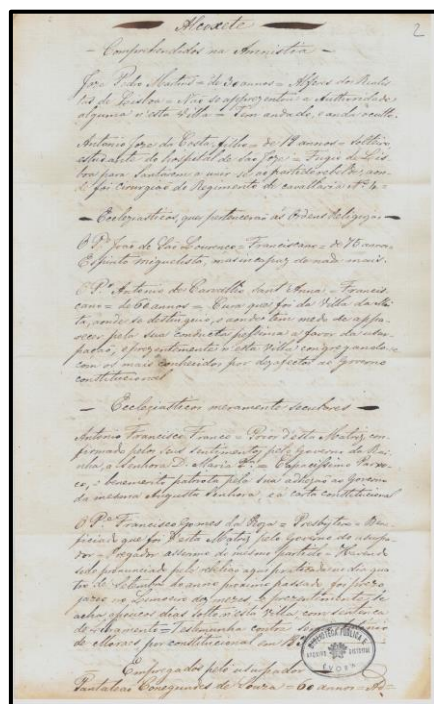 2
Alcoxete
Comprehendidos na Amenistia
Joze Pedro Martins = de 30 annos = Alferes dos Realis
tas de Lisboa = Não se apprezentou a Authoridade
alguma n'esta Villa = Tem andado, e anda occulto.
Antonio Joze da Costa, filho = de 18 annos = solteiro
estudante do hospital de São Joze = Fugio de Lis
boa para Santarem a unir se ao partido rebelde, aon
de foi cirurgião do Regimento de cavallaria Nº 4 =
Ecclesiasticos, que pertencerão ás Ordens Religiozas
O Pe. João de São Lourenço = Franciscano = de 75 annos
Espirito miguelista, mas incapaz de nada mais.
O Pe. Antonio do Carvalho Santa Anna = Francis
cano = de 60 annos = Cura que foi da Villa da Moi
ta, aonde se destinguio, e aonde tem medo de appa
recer pela sua conducta pessima a favor da uzur
pação, e prezentemente n'esta Villa congregando se
com os mais conhecidos por dezafectos ao Governo
constitucional
Ecclesiasticos meramente seculares
Antonio Francisco Franco = Prior d'esta Matriz, con
firmado pelos seus sentimentos pelo Governo da Rai
nha, a Senhora D. Maria 2ª = Capacissimo Parro
co, e benemerito patriota pela sua adhezão ao Governo
da mesma Augusta Senhora, e a carta constitucional
O Pe. Francisco Gomes da Roza = Presbytero = Bene
ficiado que foi d'esta Matriz pelo Governo do uzurpa
dor = Pregador acerrimo do mesmo partido = Havendo
sido pronunciado pelo no dia qua
tro de setembro do anno proximo passado, foi prezo,
jazeo no Limoeiro dez mezes, e prezentemente se
acha a poucos dias solto n'esta Villa com sentença
de livramento = Testemunha contra
de Moraes por constitucional em
Empregados pelo uzurpador
Pantaleão Conegundes de Souza = 60 annos = Ad
BIBLIOTECA PÚBLICA E
ARQUIVO DISTRITAL
ÉVORA